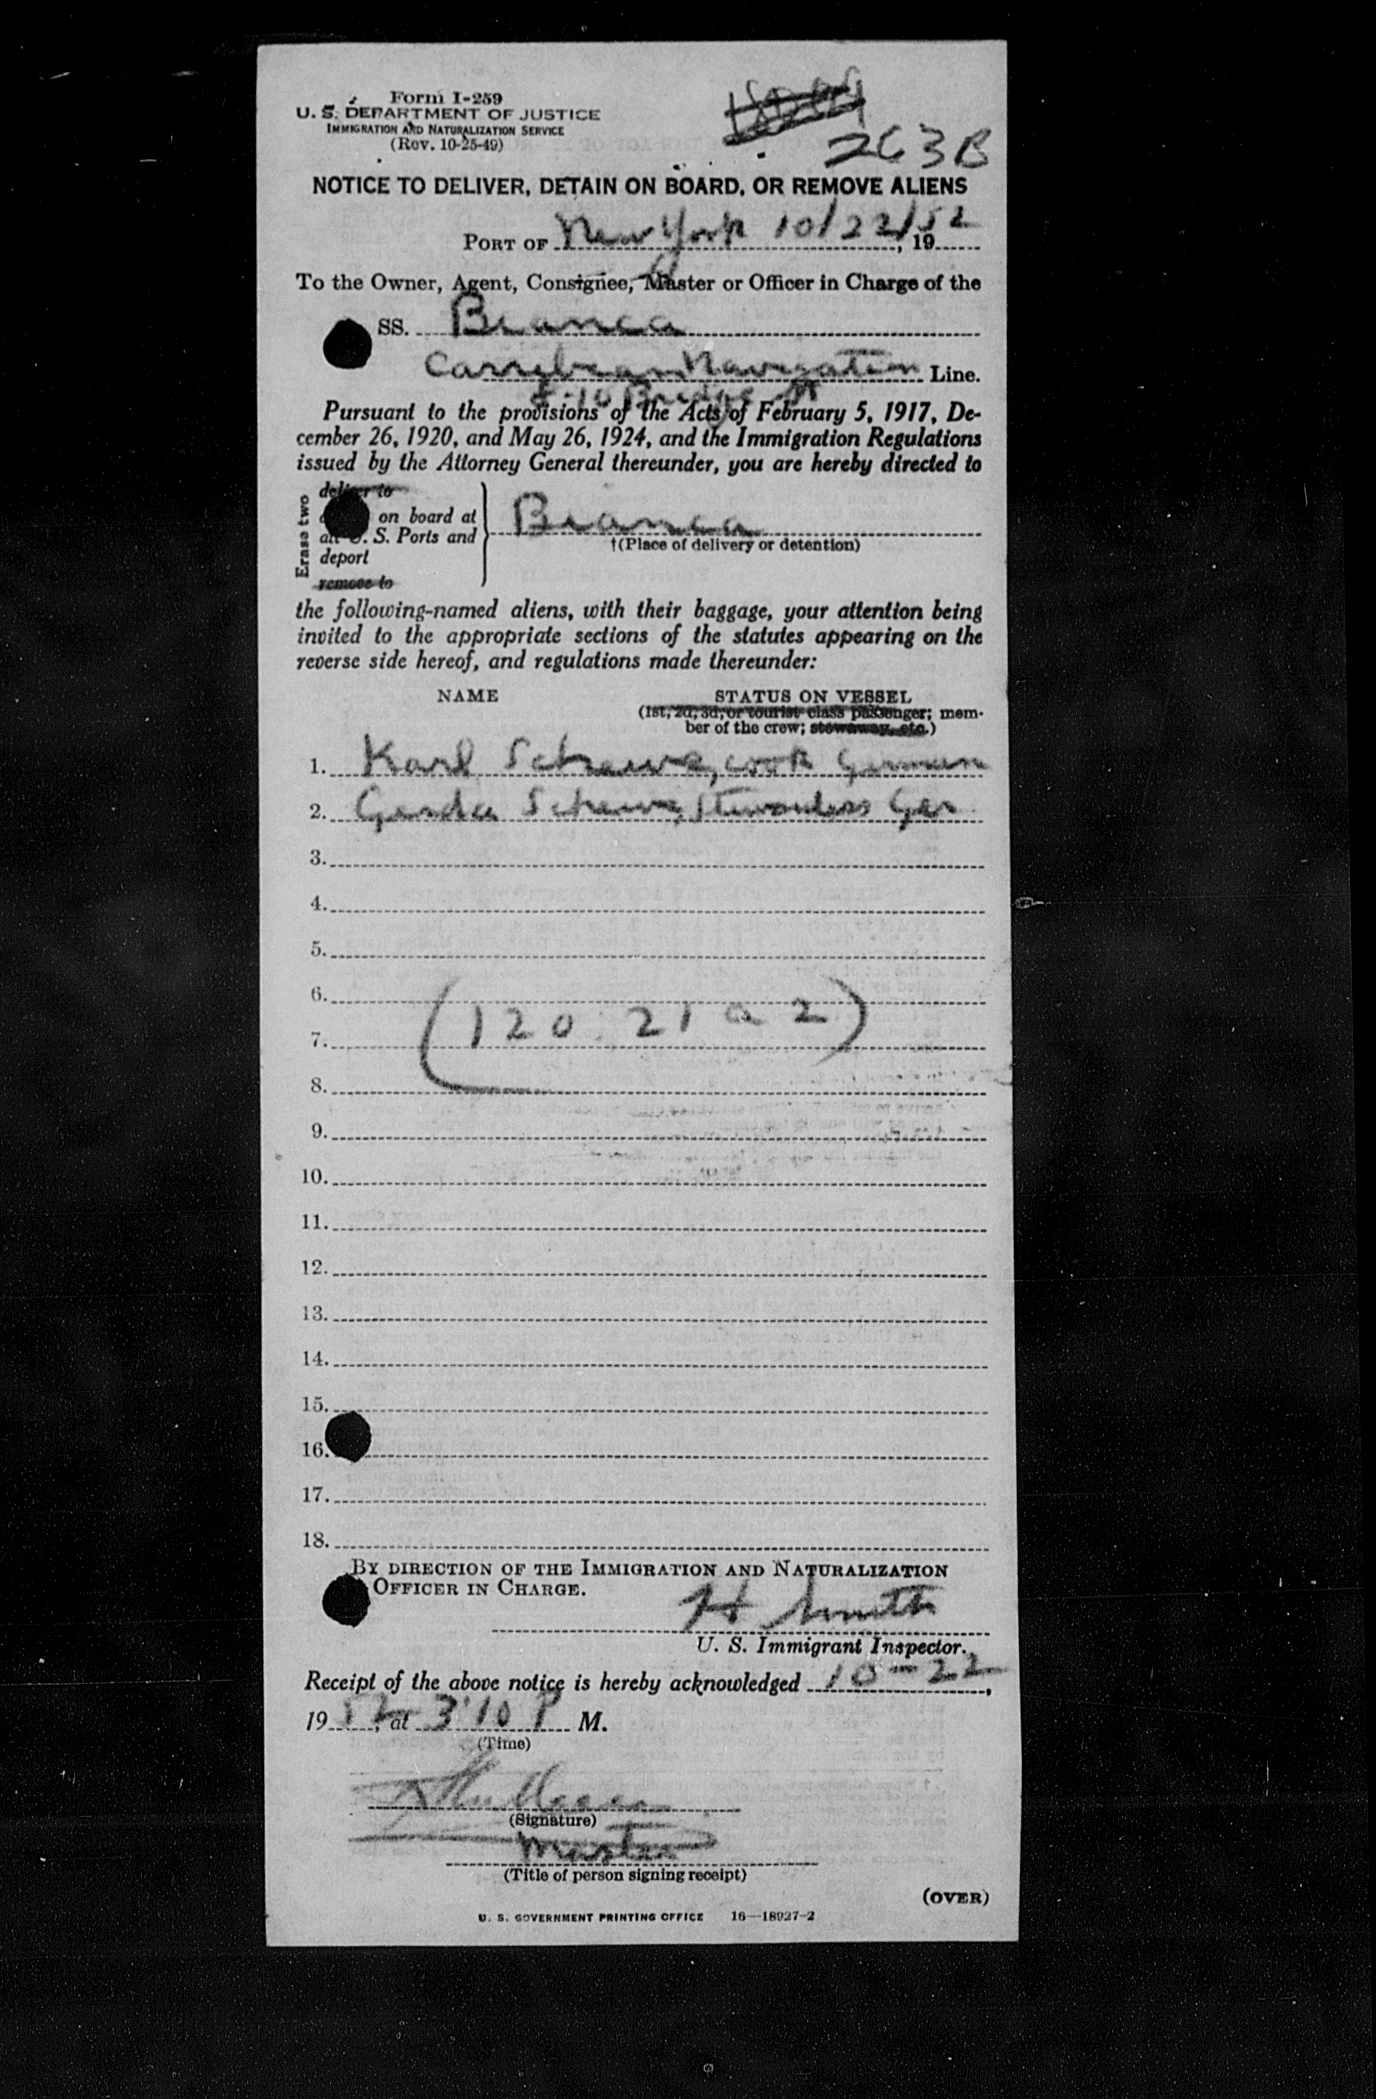 Form I-259
U. S. DEPARTMENT OF JUSTICE
IMMIGRATION AND NATURALIZATION SERVICE
(Rev. 10-25-49)
263B
NOTICE TO DELIVER, DETAIN ON BOARD, OR REMOVE ALIENS
PORT OF New York 10/22/, 1952
To the Owner, Agent, Consignee, Master or Officer in Charge of the
SS. Bianca
Carrybean Navigation Line.
8-10 Bridge St
Pursuant to the provisions of the Acts of February 5, 1917, De-
cember 26, 1920, and May 26, 1924, and the Immigration Regulations
issued by the Attorney General thereunder, you are hereby directed to
Erase two
deliver to
on board at
all U. S. Ports and
deport
remove to
Bianca
†(Place of delivery or detention)
the following-named aliens, with their baggage, your attention being
invited to the appropriate sections of the statutes appearing on the
reverse side hereof, and regulations made thereunder:
NAME STATUS ON VESSEL
(1st, 2d, 3d, or tourist class passenger; mem-
ber of the crew; stowaway, etc.)
1. Karl, cook German
2. Gerda, Stewardess Ger
3.
4.
5.
6.
(120 21 a 2)
7.
8.
9.
10.
11.
12.
13.
14.
15.
16.
17.
18.
BY DIRECTION OF THE IMMIGRATION AND NATURALIZATION
OFFICER IN CHARGE.
H Smith
U. S. Immigrant Inspector.
Receipt of the above notice is hereby acknowledged 10-22,
1952, at 3:10 P M.
(Time)
(Signature)
Master
(Title of person signing receipt)
(OVER)
U. S. GOVERNMENT PRINTING OFFICE 16—18927-2